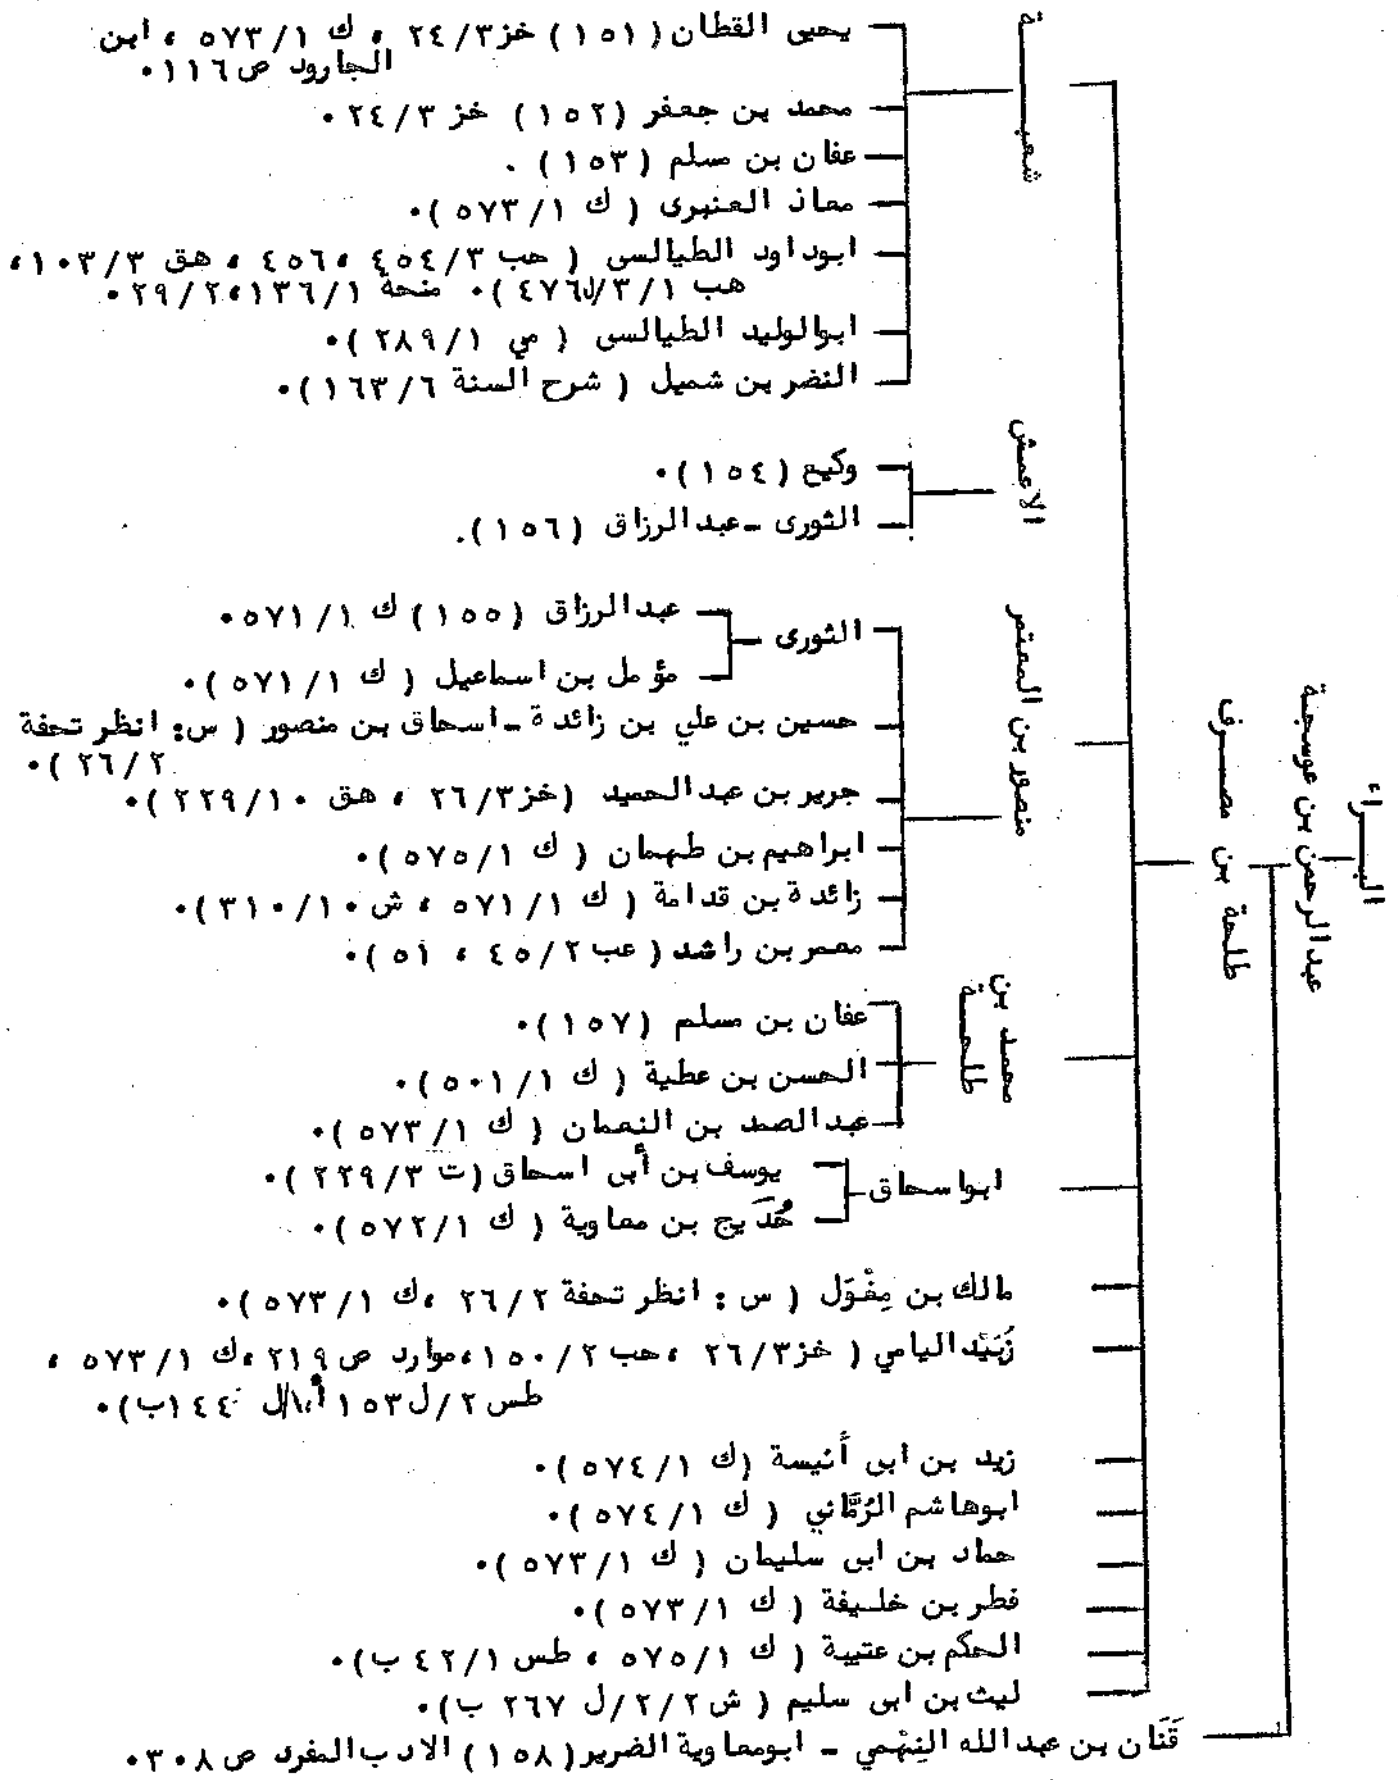 البـــراء
عبدالرحمن بن عوسجة
طلحة بن مصـــرف
شعبـــــة
يحيى القطان (١٥١) خز ٢٤/٣ ، ك ٥٧٣/١ ، ابن
الجارود ص ١١٦٠
محمد بن جعفر (١٥٢) خز ٢٤/٣ ٠
عفان بن مسلم (١٥٣) ٠
معاذ العنبرى ( ك ٥٧٣/١ )٠
ابوداود الطيالسى ( حب ٤٥٤/٣ ، ٤٥٦ ، هق ١٠٣/٣،
هب ٣/١/ل٤٧٦)٠ منحة ١٣٦/١، ٢٩/٢ ٠
ابوالوليد الطيالسى ( مي ٢٨٩/١ )٠
النضر بن شميل ( شرح السنة ١٦٣/٦ )٠
الاعمش
وكيع (١٥٤)٠
الثورى - عبدالرزاق (١٥٦)٠
منصور بن المعتمر
الثورى
عبدالرزاق (١٥٥) ك ٥٧١/١ ٠
مؤمل بن اسماعيل ( ك ٥٧١/١ )٠
حسين بن علي بن زائدة - اسحاق بن منصور ( س: انظر تحفة
٢٦/٢ )٠
جرير بن عبدالحميد (خز ٢٦/٣ ، هق ٢٢٩/١٠ )٠
ابراهيم بن طهمان ( ك ٥٧٥/١ )٠
زائدة بن قدامة ( ك ٥٧١/١ ، ش ٣١٠/١٠)٠
معمر بن راشد ( عب ٤٥/٢ ، ٥١ )٠
محمد بن
طلحـــة
عفان بن مسلم (١٥٧)٠
الحسن بن عطية ( ك ٥٠١/١ )٠
عبدالصمد بن النعمان ( ك ٥٧٣/١ )٠
ابواسحاق
يوسف بن أبى اسحاق (ت ٢٢٩/٣ )٠
حُدَيج بن معاوية ( ك ٥٧٢/١ )٠
مالك بن مِغْوَل ( س : انظر تحفة ٢٦/٢ ،ك ٥٧٣/١ )٠
زُبَيْد اليامي ( خز ٢٦/٣ ،حب ١٥٠/٢ ،موارد ص ٢١٩ ،ك ٥٧٣/١ ،
طس ٢/ل ١٥٣أ، ل ١٤٤ب)٠
زيد بن ابى أنيسة (ك ٥٧٤/١ )٠
ابوهاشم الرُمَّاني ( ك ٥٧٤/١ )٠
حماد بن ابى سليمان ( ك ٥٧٣/١ )٠
فطر بن خليفة ( ك ٥٧٣/١ )٠
الحكم بن عتيبة ( ك ٥٧٥/١ ، طس ٤٢/١ ب)٠
ليث بن ابى سليم ( ش ٢/٢/ل ٢٦٧ ب)٠
قَنَان بن عبدالله النِهْمي - ابومعاوية الضرير (١٥٨) الادب المفرد ص ٣٠٨ ٠